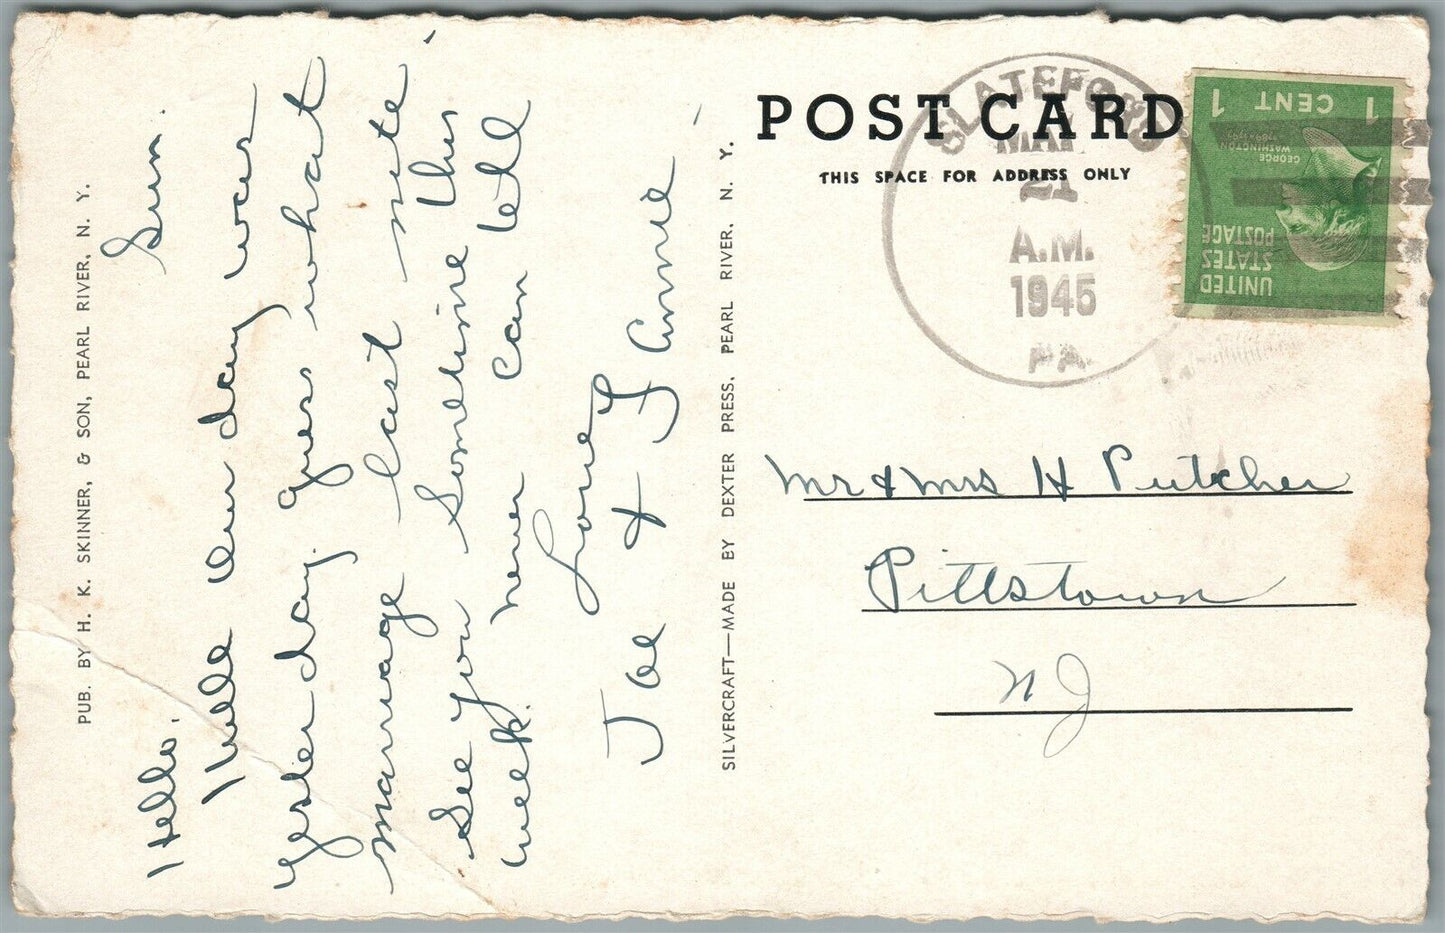 PUB. BY H. K. SKINNER, & SON, PEARL RIVER, N. Y.
Sun.
Hello.
Well our day was
yesterday, gues what
marriage last nite.
See you sometime this
week. never can tell
Love
Joe & Jannie
SILVERCRAFT—MADE BY DEXTER PRESS, PEARL RIVER, N. Y.
POST CARD
THIS SPACE FOR ADDRESS ONLY
SLATEFORD
MAY
21
A.M.
1945
PA.
1 CENT 1
GEORGE
WASHINGTON
1789-1797
UNITED
STATES
POSTAGE
Mr & Mrs H Putcher
Pittstown
NJ